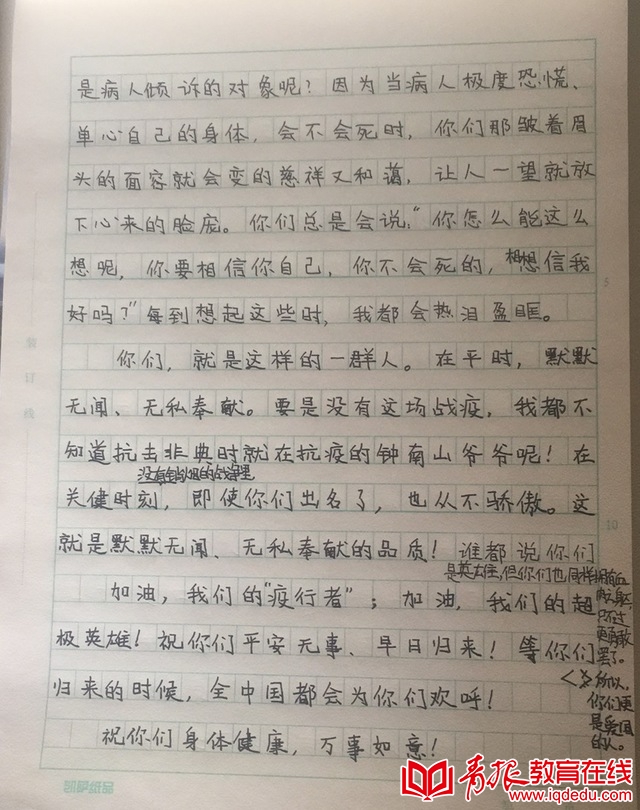 是病人倾诉的对象呢？因为当病人极度恐慌、
单心自己的身体，会不会死时，你们那皱着眉
头的面容就会变的慈祥又和蔼，让人一望就放
下心来的脸庞。你们总是会说：“你怎么能这么
想呢，你要相信你自己，你不会死的，相信我
好吗？”每到想起这些时，我都会热泪盈眶。
你们，就是这样的一群人。在平时，默默
无闻、无私奉献。要是没有这场战疫，我都不
知道抗击非典时就在抗疫的钟南山爷爷呢！在
没有硝烟的战争里
关健时刻，即使你们出名了，也从不骄傲。这
就是默默无闻、无私奉献的品质！谁都说你们
是英雄，但你们也同样拥有血
肉之躯，
只不过
更勇敢
罢了。
所以，
你们更
是爱国
的人。
加油，我们的“疫行者”；加油，我们的超
极英雄！祝你们平安无事、早日归来！等你们
归来的时候，全中国都会为你们欢呼！
祝你们身体健康，万事如意！
装订线
5
10
青报教育在线
www.iqdedu.com